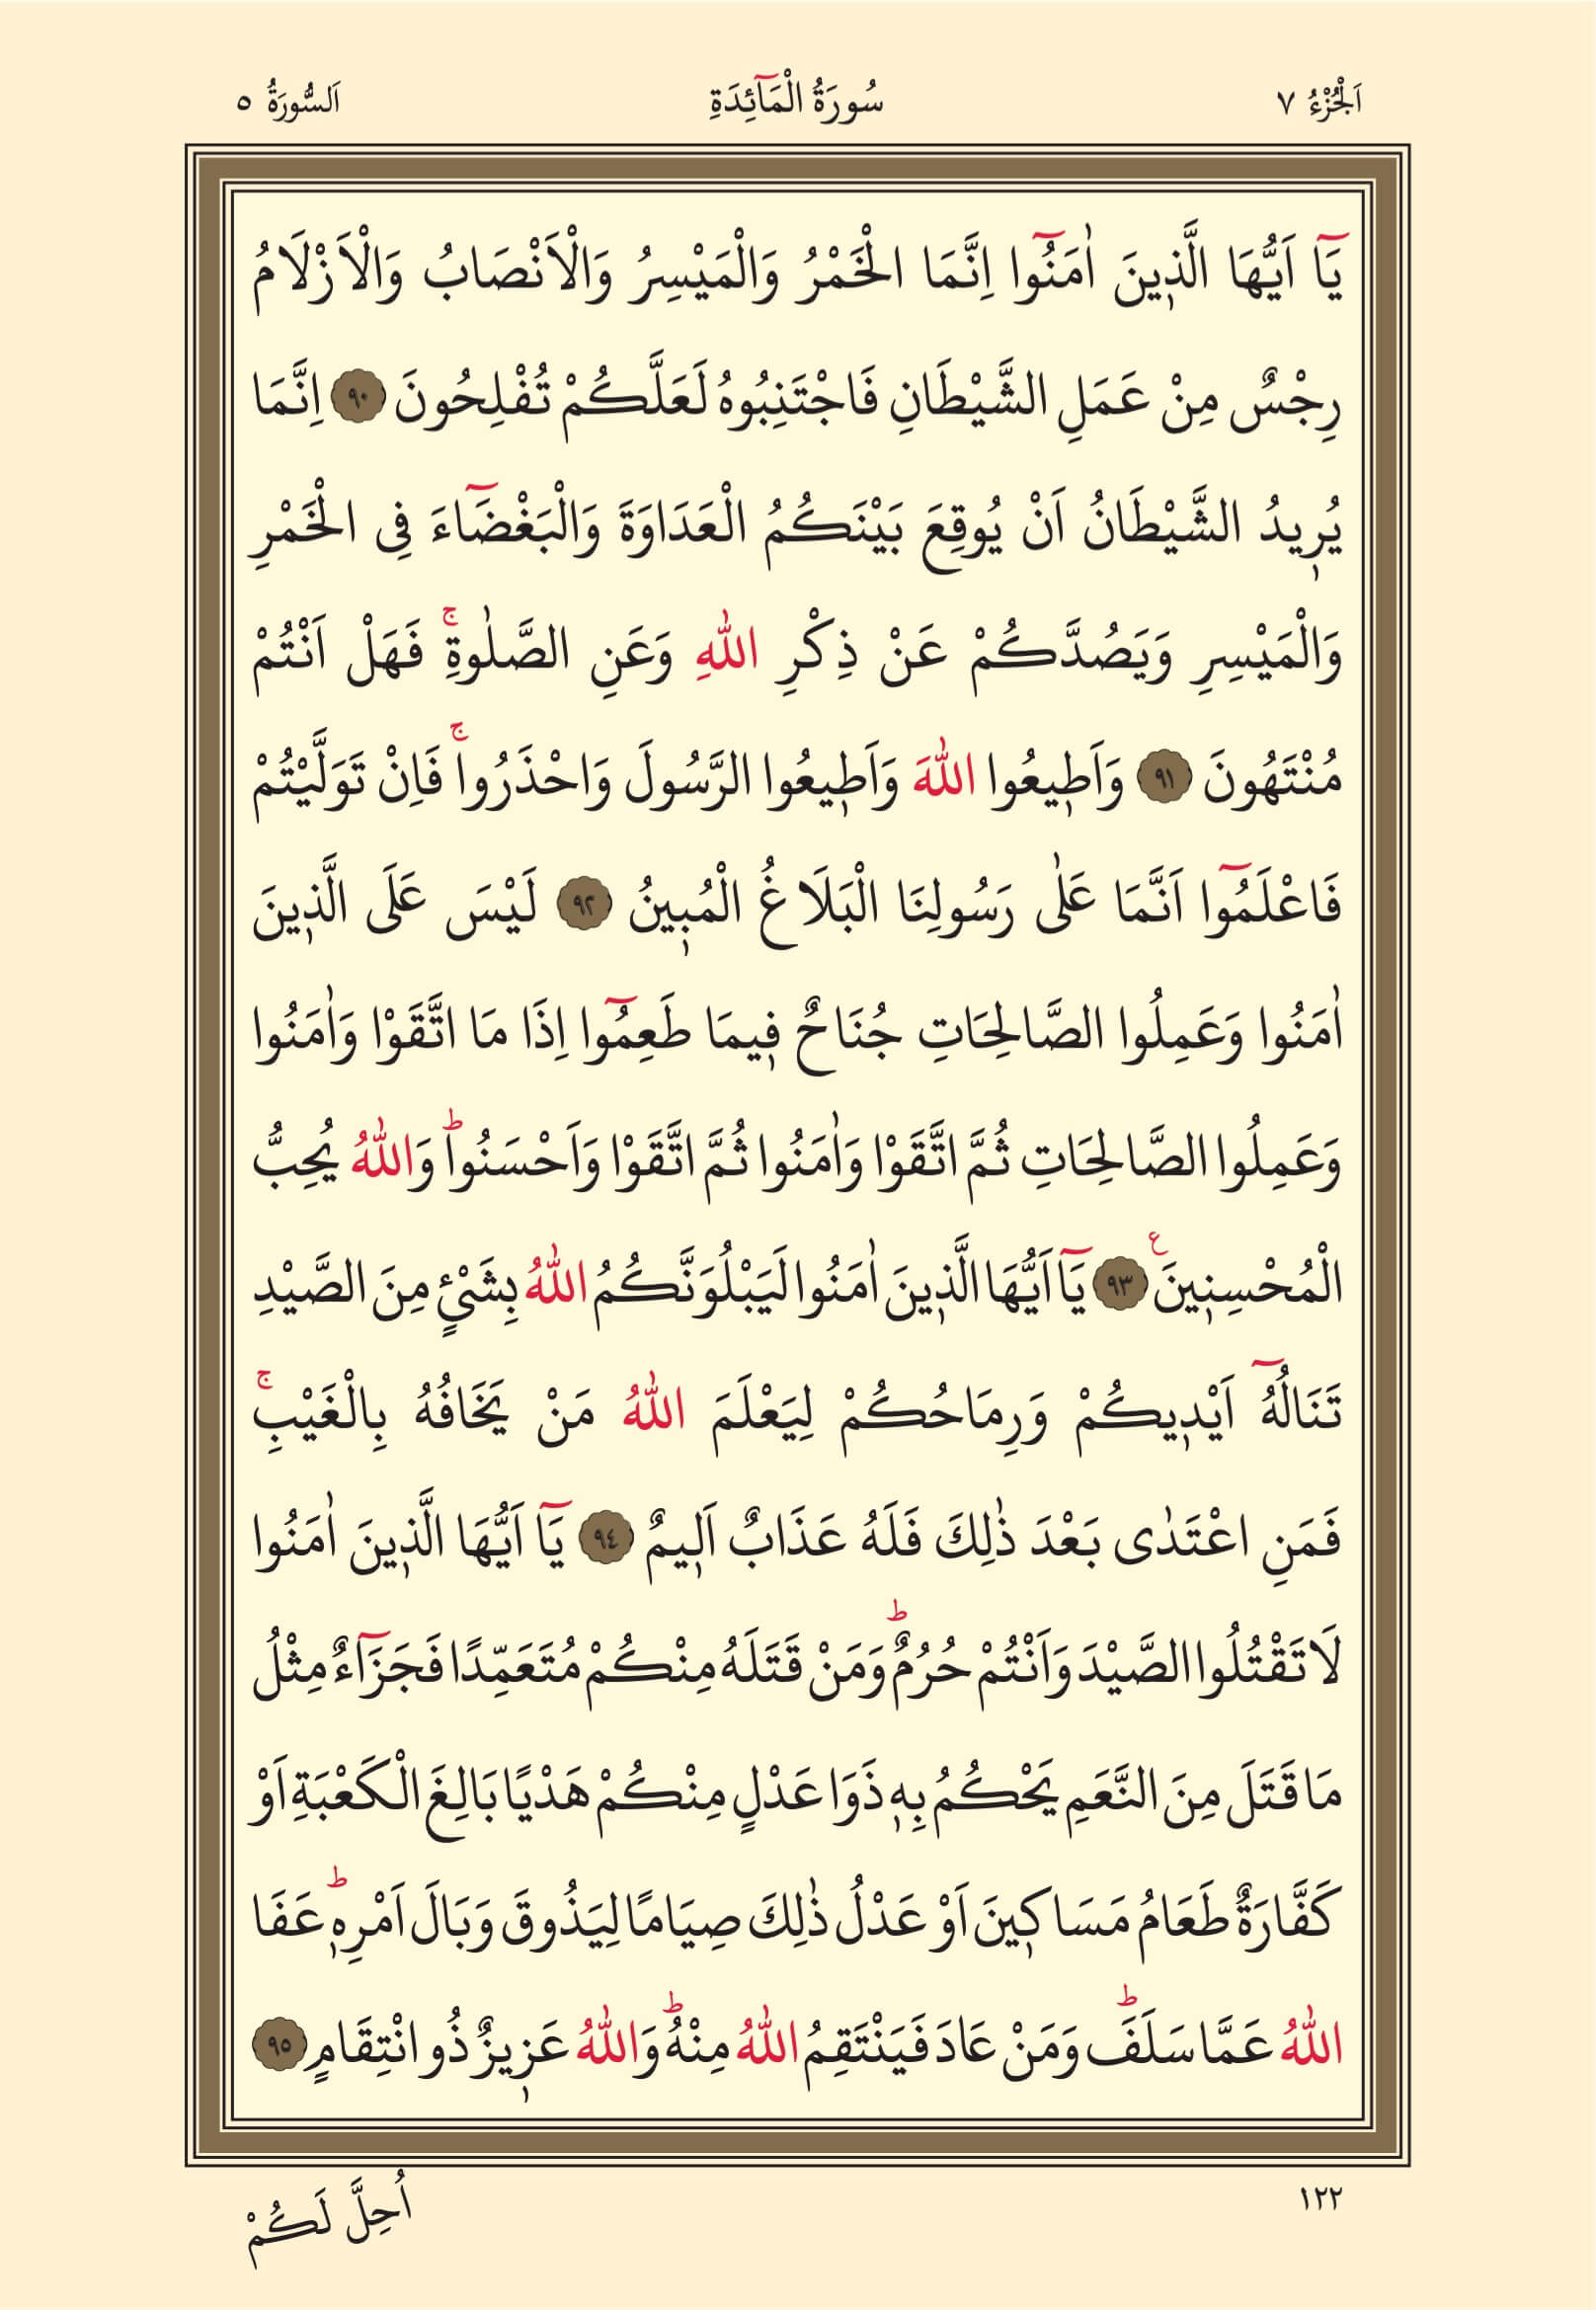 اَلْجُزْءُ ٧ سُورَةُ الْمَٓائِدَةِ اَلسُّورَةُ ٥
يَٓا اَيُّهَا الَّذ۪ينَ اٰمَنُٓوا اِنَّمَا الْخَمْرُ وَالْمَيْسِرُ وَالْاَنْصَابُ وَالْاَزْلَامُ
رِجْسٌ مِنْ عَمَلِ الشَّيْطَانِ فَاجْتَنِبُوهُ لَعَلَّكُمْ تُفْلِحُونَ ﴿٩٠﴾ اِنَّمَا
يُر۪يدُ الشَّيْطَانُ اَنْ يُوقِعَ بَيْنَكُمُ الْعَدَاوَةَ وَالْبَغْضَٓاءَ فِى الْخَمْرِ
وَالْمَيْسِرِ وَيَصُدَّكُمْ عَنْ ذِكْرِ اللّٰهِ وَعَنِ الصَّلٰوةِۚ فَهَلْ اَنْتُمْ
مُنْتَهُونَ ﴿٩١﴾ وَاَط۪يعُوا اللّٰهَ وَاَط۪يعُوا الرَّسُولَ وَاحْذَرُواۚ فَاِنْ تَوَلَّيْتُمْ
فَاعْلَمُٓوا اَنَّمَا عَلٰى رَسُولِنَا الْبَلَاغُ الْمُب۪ينُ ﴿٩٢﴾ لَيْسَ عَلَى الَّذ۪ينَ
اٰمَنُوا وَعَمِلُوا الصَّالِحَاتِ جُنَاحٌ ف۪يمَا طَعِمُٓوا اِذَا مَا اتَّقَوْا وَاٰمَنُوا
وَعَمِلُوا الصَّالِحَاتِ ثُمَّ اتَّقَوْا وَاٰمَنُوا ثُمَّ اتَّقَوْا وَاَحْسَنُواۜ وَاللّٰهُ يُحِبُّ
الْمُحْسِن۪ينَ ع ﴿٩٣﴾ يَٓا اَيُّهَا الَّذ۪ينَ اٰمَنُوا لَيَبْلُوَنَّكُمُ اللّٰهُ بِشَيْءٍ مِنَ الصَّيْدِ
تَنَالُهُٓ اَيْد۪يكُمْ وَرِمَاحُكُمْ لِيَعْلَمَ اللّٰهُ مَنْ يَخَافُهُ بِالْغَيْبِۚ
فَمَنِ اعْتَدٰى بَعْدَ ذٰلِكَ فَلَهُ عَذَابٌ اَل۪يمٌ ﴿٩٤﴾ يَٓا اَيُّهَا الَّذ۪ينَ اٰمَنُوا
لَا تَقْتُلُوا الصَّيْدَ وَاَنْتُمْ حُرُمٌۜ وَمَنْ قَتَلَهُ مِنْكُمْ مُتَعَمِّدًا فَجَزَٓاءٌ مِثْلُ
مَا قَتَلَ مِنَ النَّعَمِ يَحْكُمُ بِه۪ ذَوَا عَدْلٍ مِنْكُمْ هَدْيًا بَالِغَ الْكَعْبَةِ اَوْ
كَفَّارَةٌ طَعَامُ مَسَاك۪ينَ اَوْ عَدْلُ ذٰلِكَ صِيَامًا لِيَذُوقَ وَبَالَ اَمْرِه۪ۜ عَفَا
اللّٰهُ عَمَّا سَلَفَۜ وَمَنْ عَادَ فَيَنْتَقِمُ اللّٰهُ مِنْهُۜ وَاللّٰهُ عَز۪يزٌ ذُو انْتِقَامٍ ﴿٩٥﴾
١٢٢ اُحِلَّ لَكُمْ